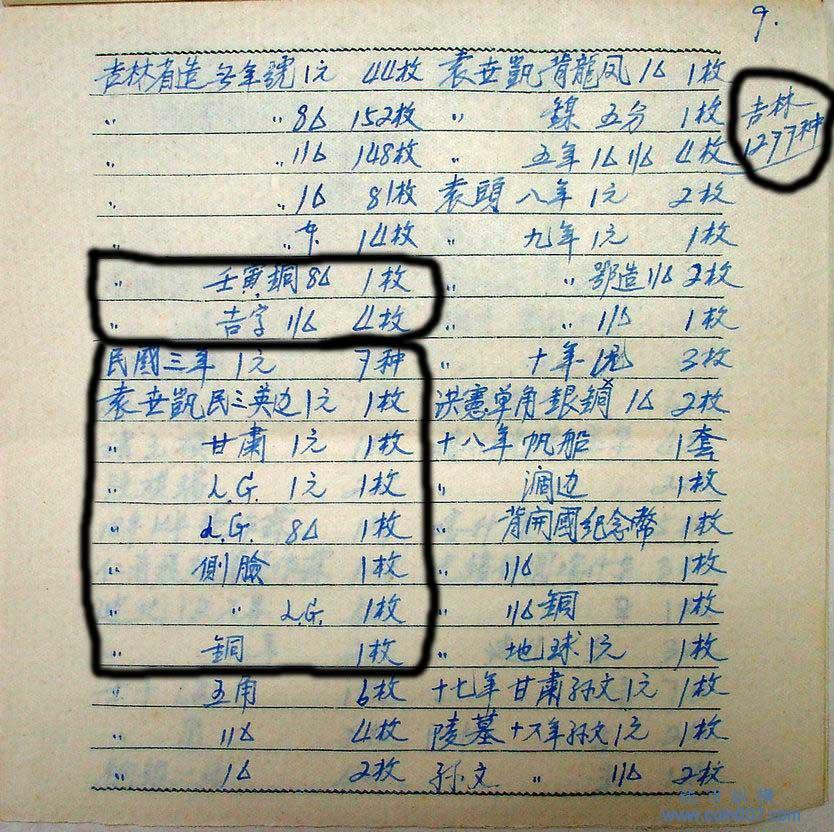 9.
吉林省造 无年號 1元 44枚
〃 〃 8厶 152枚
〃 〃 11厶 148枚
〃 〃 1厶 81枚
〃 〃 14枚
〃 壬寅銅 8厶 1枚
〃 吉字 11厶 4枚
民國三年 1元 7种
袁世凱民三英边1元 1枚
〃 甘肅 1元 1枚
〃 L.G. 1元 1枚
〃 L.G. 8厶 1枚
〃 側臉 1枚
〃 〃 L.G. 1枚
〃 銅 1枚
〃 五角 6枚
〃 11厶 4枚
〃 1厶 2枚
袁世凱 背龍凤 1厶 1枚
〃 鎳 五分 1枚
〃 五年 1厶 11厶 4枚
袁頭 八年 1元 2枚
〃 九年 1元 1枚
〃 〃 鄂造 11厶 2枚
〃 〃 11厶 1枚
〃 十年 3枚
洪憲单角銀銅 1厶 2枚
十八年 帆船 1套
〃 边 1枚
〃 背開國紀念幣 1枚
〃 11厶 1枚
〃 11厶銅 1枚
〃 地球 1元 1枚
十七年 甘肅孙文 1元 1枚
陵墓 十六年孙文 1元 1枚
孙文 〃 11厶 2枚
吉林
1277种